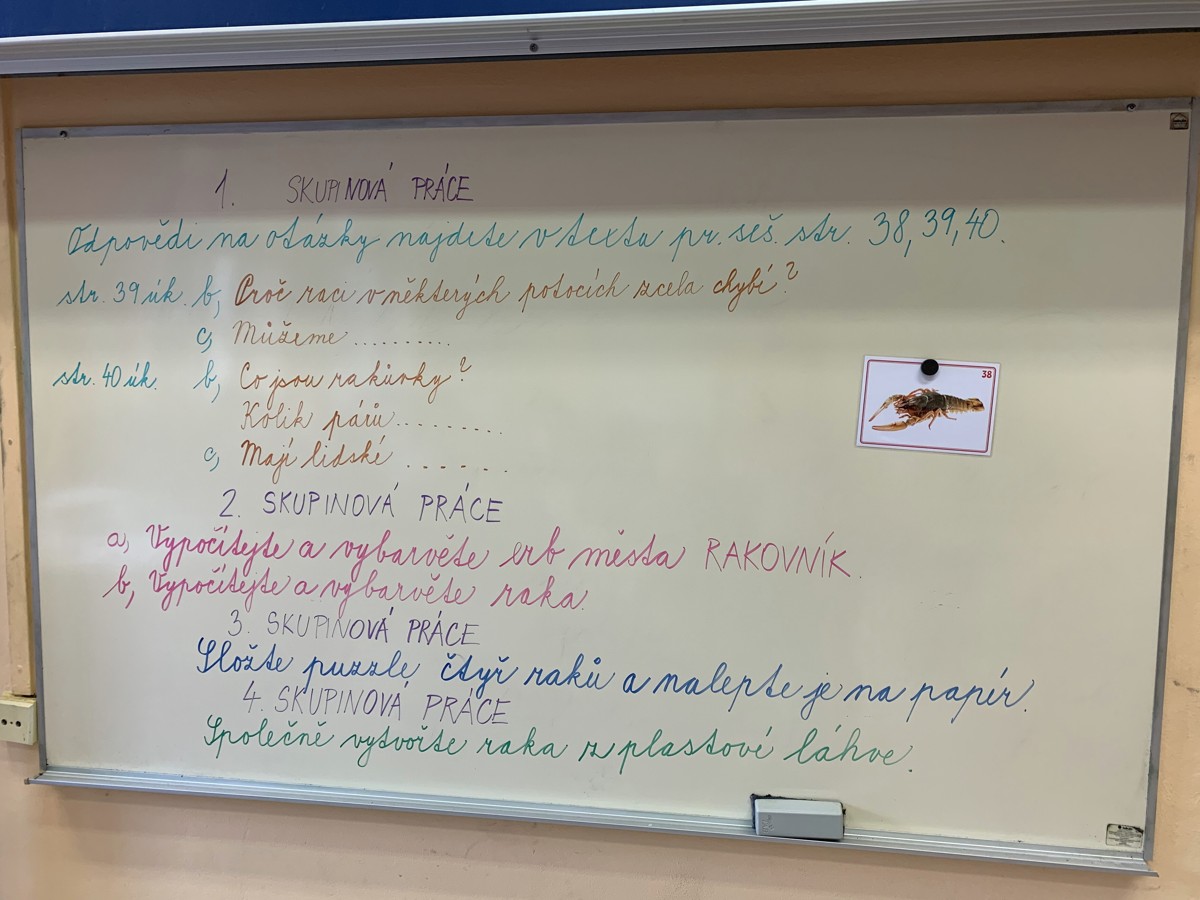 1. SKUPINOVÁ PRÁCE
Odpovědi na otázky najdete v textu pr. seš. str. 38, 39, 40.
str. 39 úk. b, Proč raci v některých potocích zcela chybí?
c, Můžeme ..........
str. 40 úk. b, Co jsou rakůvky?
Kolik párů .........
c, Mají lidské ......
38
2. SKUPINOVÁ PRÁCE
a, Vypočítejte a vybarvěte erb města RAKOVNÍK.
b, Vypočítejte a vybarvěte raka.
3. SKUPINOVÁ PRÁCE
Složte puzzle čtyř raků a nalepte je na papír.
4. SKUPINOVÁ PRÁCE
Společně vytvořte raka z plastové láhve.